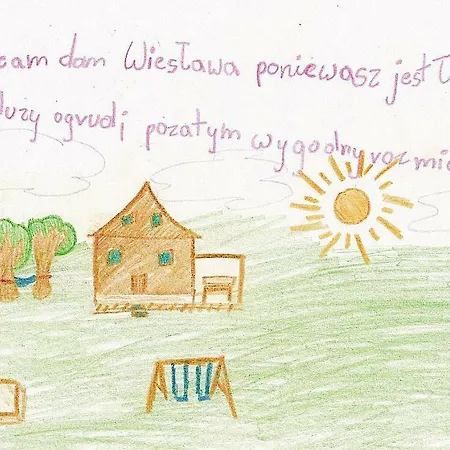 ecam dom Wiesława poniewasz jest
duży ogrud i pozatym wygodny roz mia